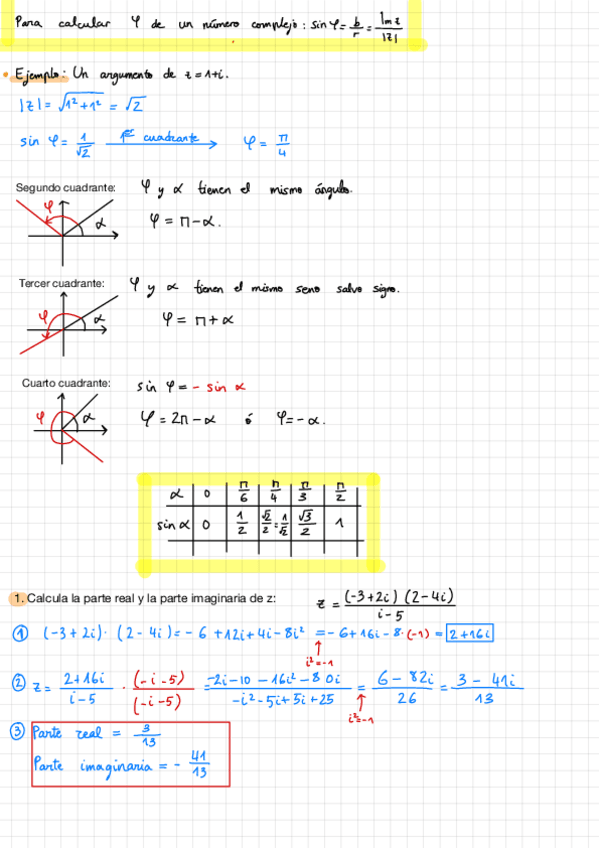 Para calcular φ de un número complejo: sin φ = b/r = Im z/|z|
• Ejemplo: Un argumento de z = 1+i.
|z| = √(1² + 1²) = √2
sin φ = 1/√2 1er cuadrante → φ = π/4
Segundo cuadrante: φ y α tienen el mismo ángulo.
φ α
φ = π - α.
Tercer cuadrante: φ y α tienen el mismo seno salvo signo.
φ α
φ = π + α
Cuarto cuadrante: sin φ = - sin α
φ α
φ = 2π - α ó φ = -α.
α | 0 | π/6 | π/4 | π/3 | π/2
sin α | 0 | 1/2 | √2/2 = 1/√2 | √3/2 | 1
1. Calcula la parte real y la parte imaginaria de z: z = (-3+2i) (2-4i) / i-5
① (-3+2i) · (2-4i) = -6 +12i + 4i - 8i² = -6 + 16i - 8·(-1) = 2+16i
i² = -1
② z = 2+16i / i-5 · (-i-5) / (-i-5) = -2i-10-16i²-80i / -i²-5i+5i+25 = 6-82i / 26 = 3-41i / 13
i² = -1
③ Parte real = 3/13
Parte imaginaria = - 41/13